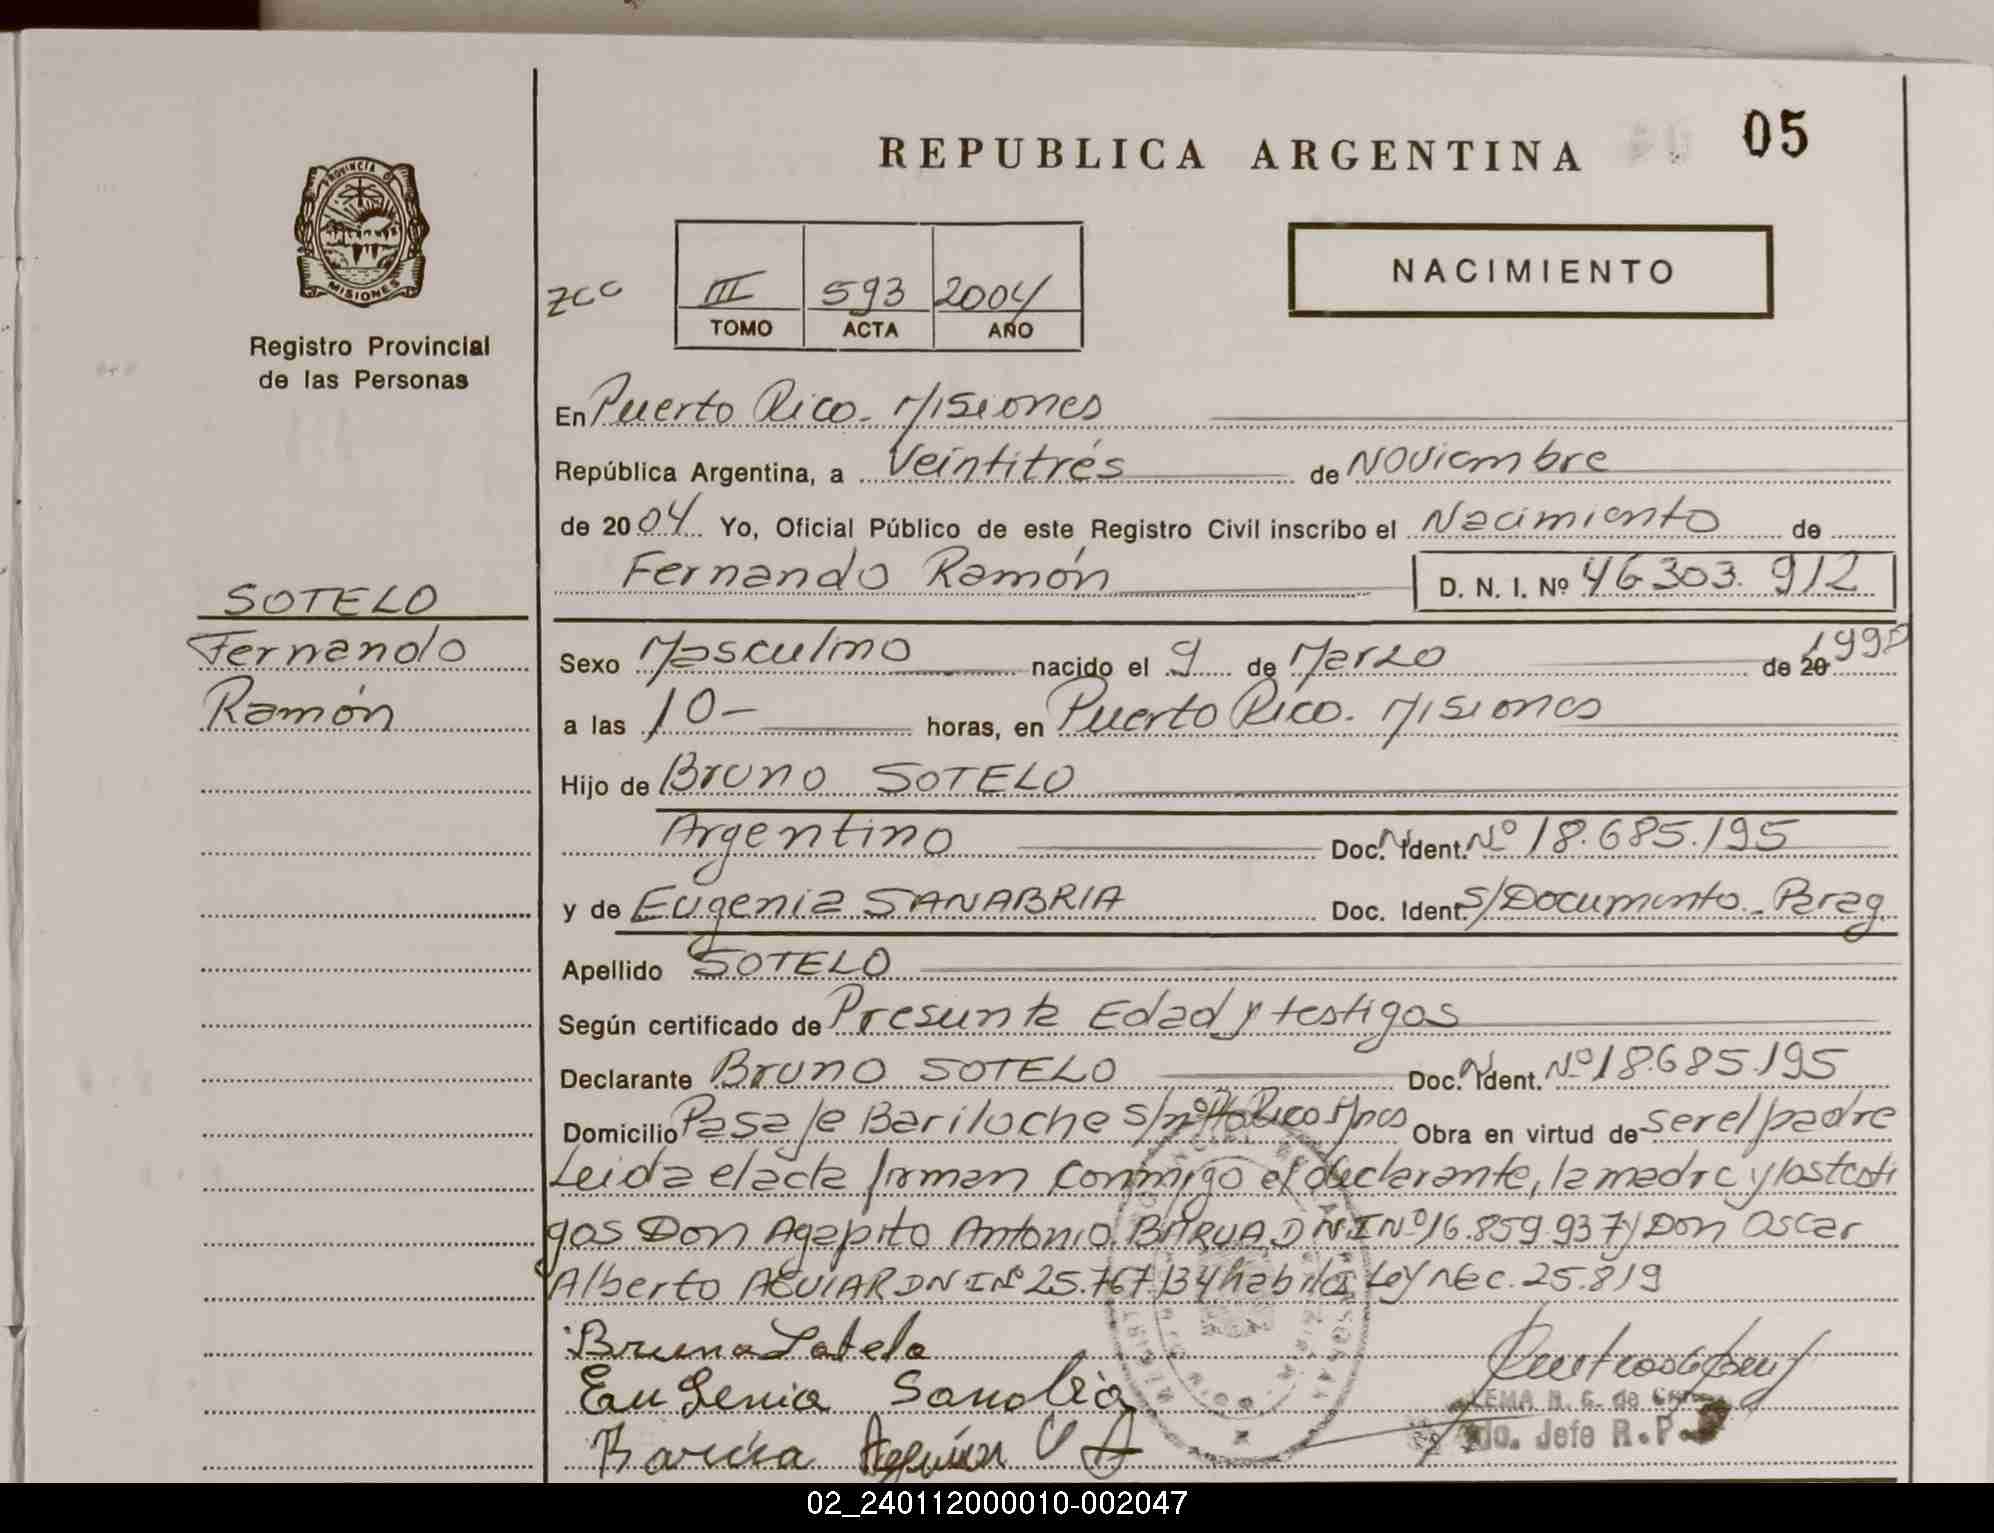 REPUBLICA ARGENTINA
05
PROVINCIA DE
MISIONES
Registro Provincial
de las Personas
zcc
III 593 2004
TOMO ACTA AÑO
NACIMIENTO
En Puerto Rico. Misiones
República Argentina, a Veintitrés de Noviembre
de 2004 Yo, Oficial Público de este Registro Civil inscribo el Nacimiento de
Fernando Ramón D. N. I. Nº 46303.912
SOTELO
Fernando
Ramón
Sexo Masculino nacido el 9 de Marzo de 20 199
a las 10- horas, en Puerto Rico. Misiones
Hijo de Bruno SOTELO
Argentino Doc. N. Ident. Nº 18.685.195
y de Eugenia SANABRIA Doc. Ident. S/Documento. Parag.
Apellido SOTELO
Según certificado de Presunta Edad y testigos
Declarante Bruno SOTELO Doc. N. Ident. Nº 18.685.195
Domicilio Pasaje Bariloche s/nº Pto Rico Mnes Obra en virtud de ser el padre
Leida el acta firman conmigo el declarante, la madre y los testi
gos Don Agapito Antonio BARUA DNI Nº 16.859.937 y Don Oscar
Alberto AGUIAR DNI Nº 25.767.134 habiles Ley Nec. 25.819
Bruno Sotelo
Eugenia Sanabria
Barua Aguiar O A
LEMA N. G. de
Jefe R.P.
02_240112000010-002047